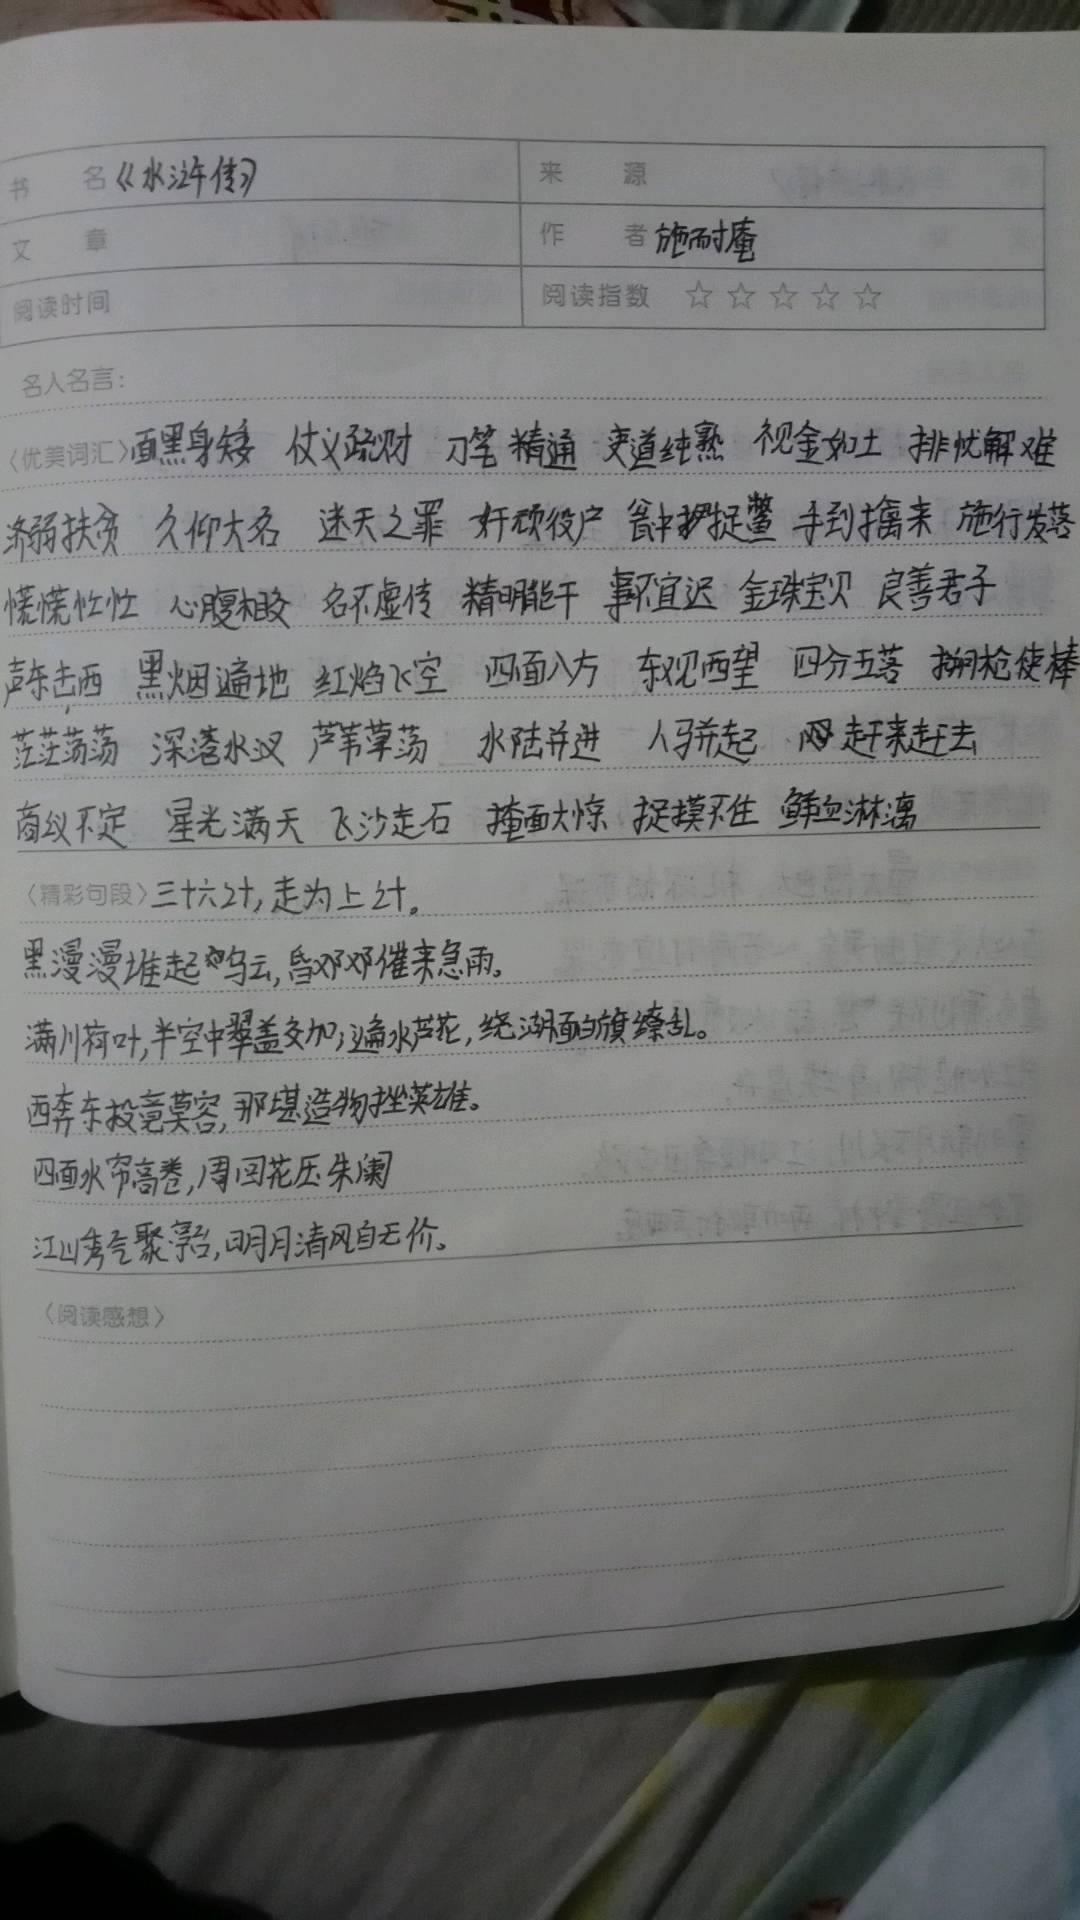 书 名 《水浒传》 来 源
文 章 作 者 施耐庵
阅读时间 阅读指数 ☆☆☆☆☆
名人名言:
〈优美词汇〉面黑身矮 仗义疏财 刀笔精通 吏道纯熟 视金如土 排忧解难
济弱扶贫 久仰大名 迷天之罪 奸顽役户 瓮中捉鳖 手到擒来 施行发落
慌慌忙忙 心腹相交 名不虚传 精明能干 事不宜迟 金珠宝贝 良善君子
声东击西 黑烟遍地 红焰飞空 四面八方 东观西望 四分五落 搠枪使棒
茫茫荡荡 深港水汊 芦苇草荡 水陆并进 人马并起 赶来赶去
商议不定 星光满天 飞沙走石 掩面大惊 捉摸不住 鲜血淋漓
〈精彩句段〉三十六计,走为上计。
黑漫漫堆起乌云,昏邓邓催来急雨。
满川荷叶,半空中翠盖交加;遍水芦花,绕湖面白旗缭乱。
西奔东投竟莫容,那堪造物挫英雄。
四面水帘高卷,周回花压朱阑
江山秀气聚亭台,明月清风自无价。
〈阅读感想〉